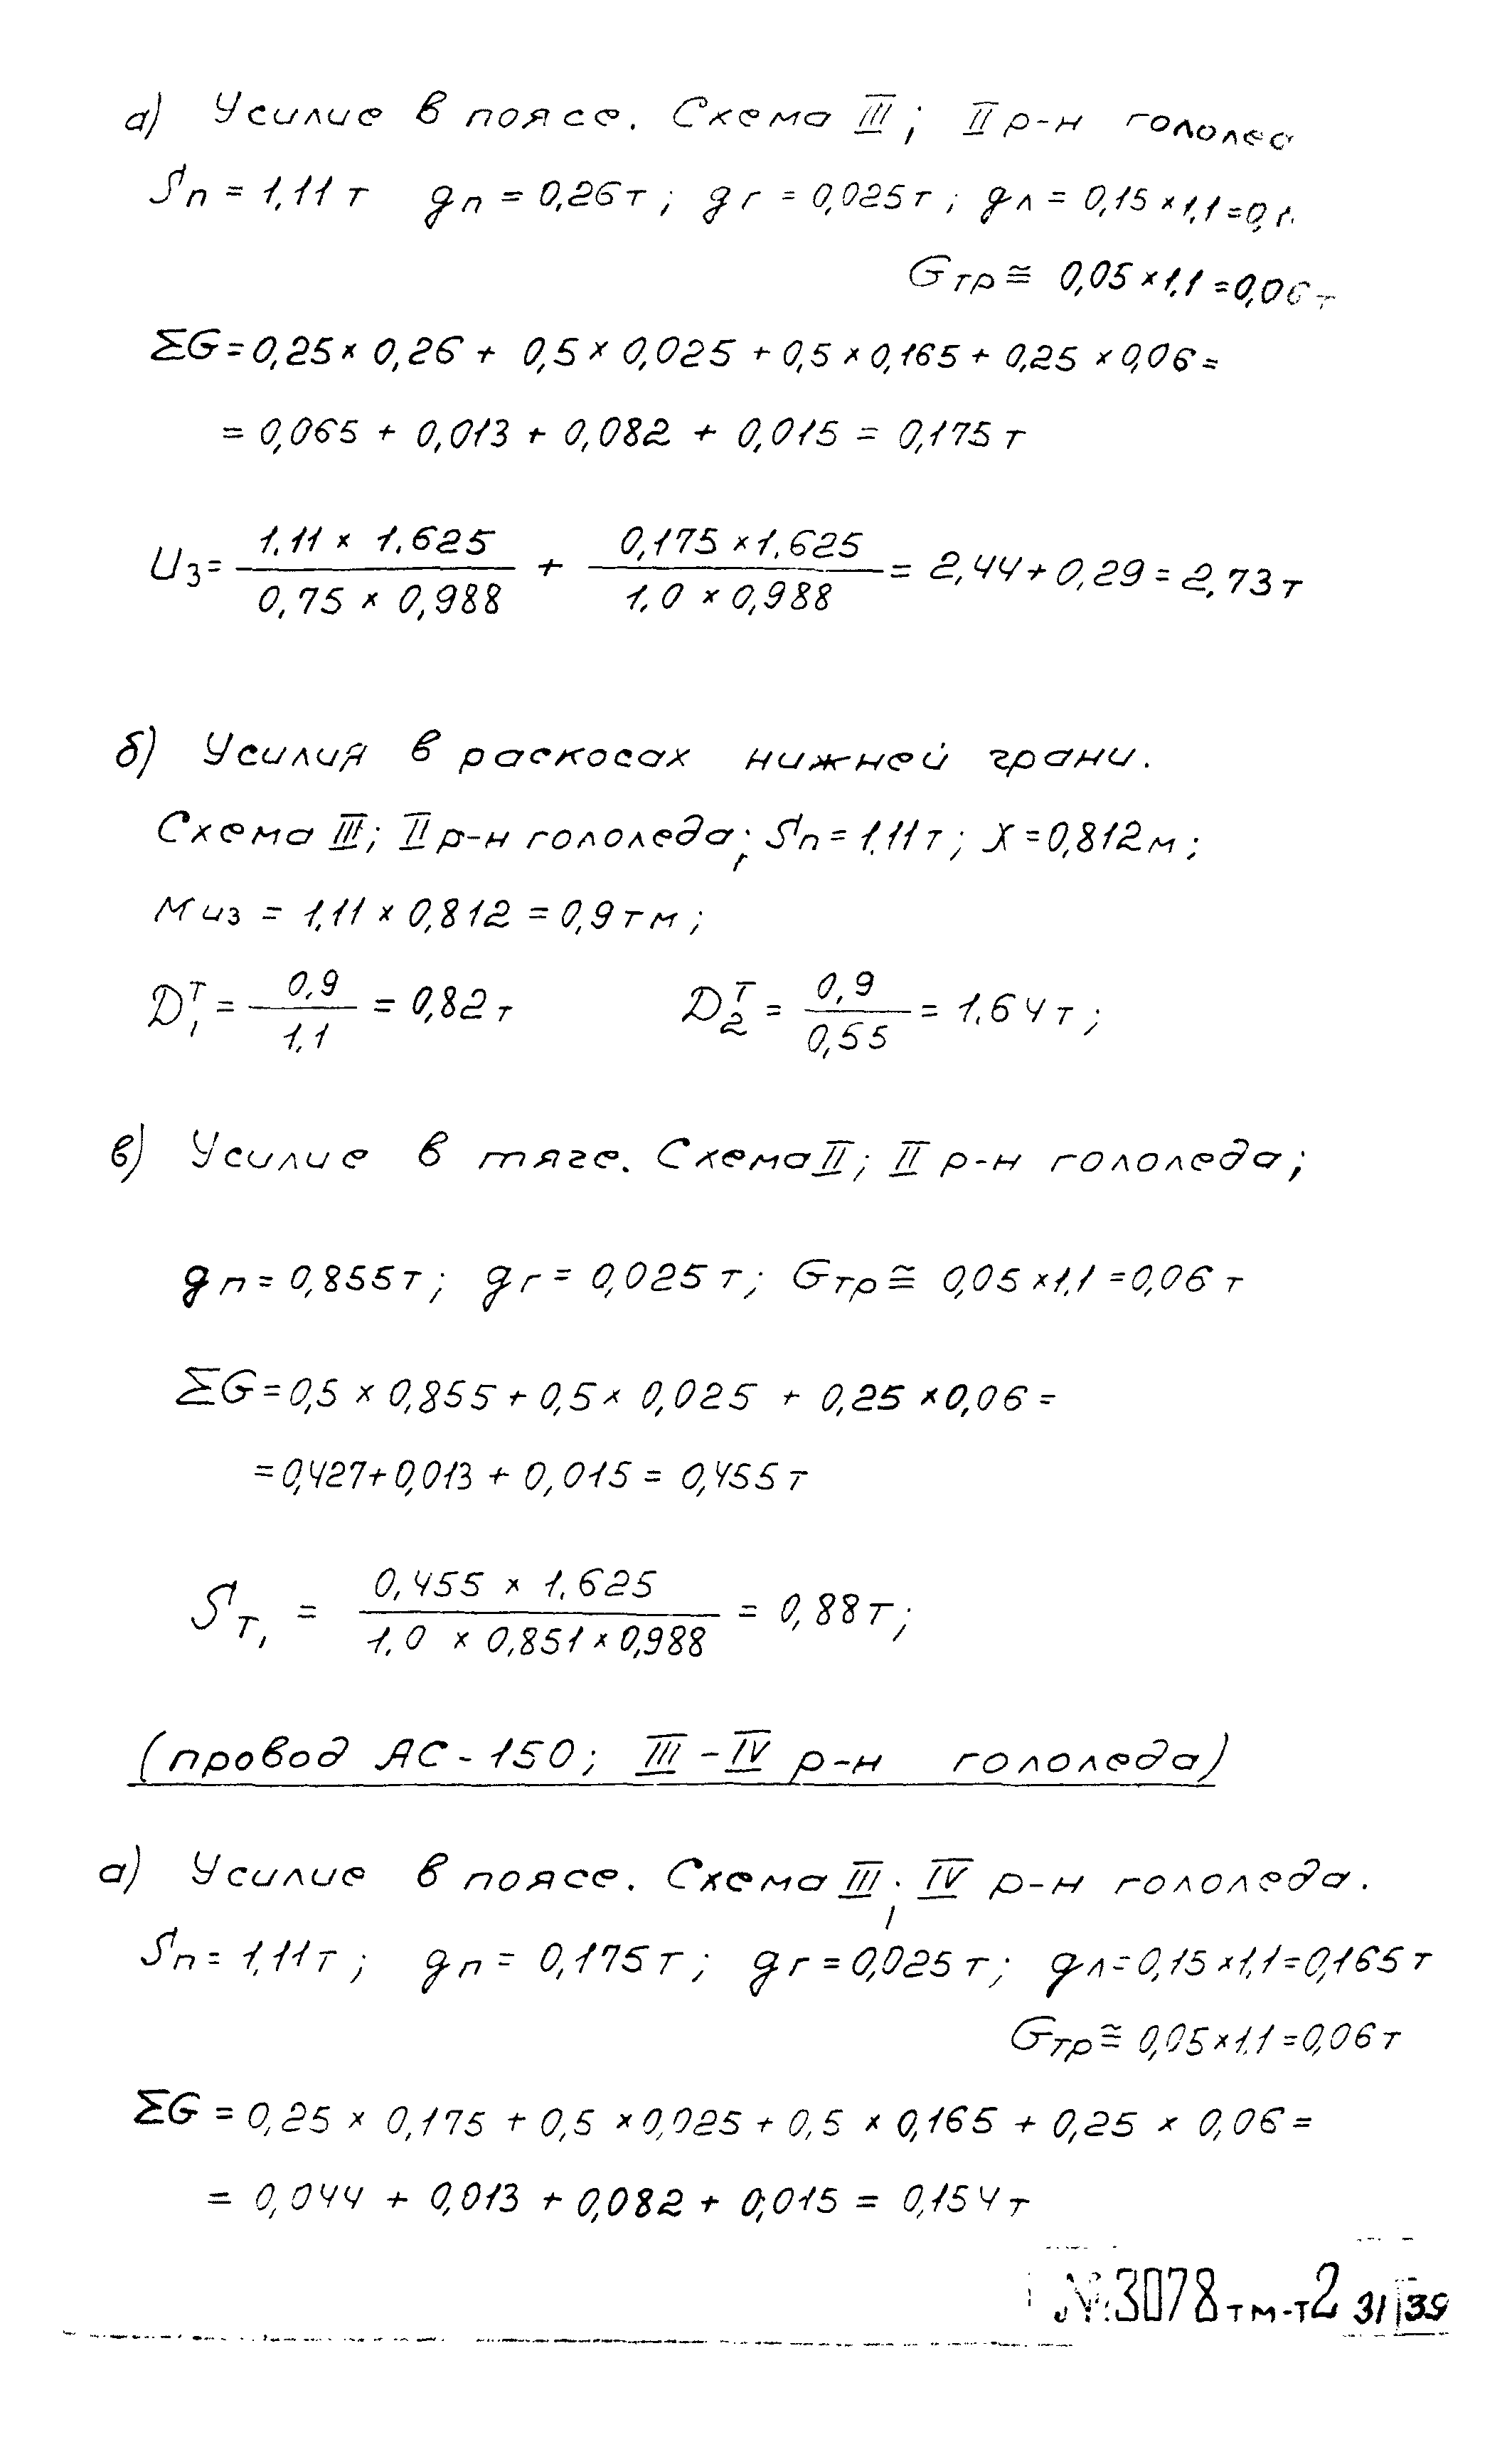 а) Усилие в поясе. Схема III; II р-н
Sп = 1,11 т gп = 0,26 т; gг = 0,025 т; gл = 0,15 × 1,1 =
Gтр ≅ 0,05 × 1,1 = 0,06 т
ΣG = 0,25 × 0,26 + 0,5 × 0,025 + 0,5 × 0,165 + 0,25 × 0,06 =
= 0,065 + 0,013 + 0,082 + 0,015 = 0,175 т
U3 = (1,11 × 1,625) / (0,75 × 0,988) + (0,175 × 1,625) / (1,0 × 0,988) = 2,44 + 0,29 = 2,73 т
б) Усилия в раскосах нижней грани.
Схема III; II р-н гололеда; Sп = 1,11 т; X = 0,812 м;
Mиз = 1,11 × 0,812 = 0,9 тм;
D₁ᵀ = 0,9 / 1,1 = 0,82 т D₂ᵀ = 0,9 / 0,55 = 1,64 т;
в) Усилие в тяге. Схема II; II р-н гололеда;
gп = 0,855 т; gг = 0,025 т; Gтр ≅ 0,05 × 1,1 = 0,06 т
ΣG = 0,5 × 0,855 + 0,5 × 0,025 + 0,25 × 0,06 =
= 0,427 + 0,013 + 0,015 = 0,455 т
Sт₁ = (0,455 × 1,625) / (1,0 × 0,851 × 0,988) = 0,88 т;
(провод АС-150; III - IV р-н гололеда)
а) Усилие в поясе. Схема III; IV р-н гололеда.
Sп = 1,11 т; gп = 0,175 т; gг = 0,025 т; gл = 0,15 × 1,1 = 0,165 т
Gтр ≅ 0,05 × 1,1 = 0,06 т
ΣG = 0,25 × 0,175 + 0,5 × 0,025 + 0,5 × 0,165 + 0,25 × 0,06 =
= 0,044 + 0,013 + 0,082 + 0,015 = 0,154 т
№ 3078тм-т2 31 39